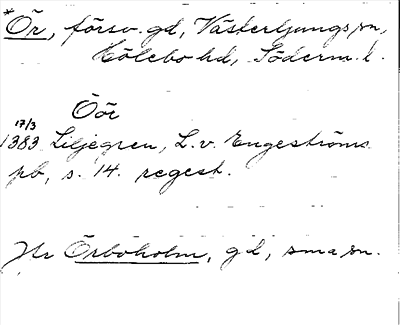 *Ör, försv. gd, Västerljungs sn,
Hölebo hd, Söderm. l.
Öör
17/3
1383 Liljegren, L. v. Engeströms
pb, s. 14. regest.
Jfr Örboholm, gd, sma sn.